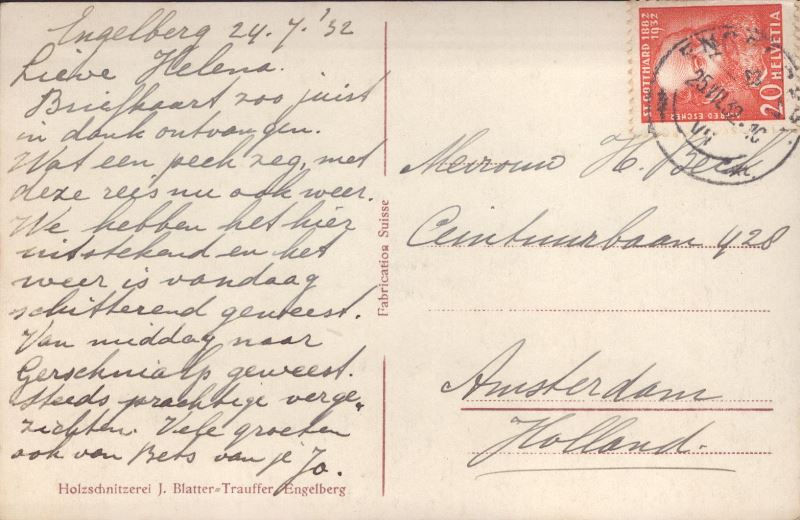 Engelberg 24.7.'32
Lieve Helena.
Briefkaart zoo juist
in dank ontvangen.
Wat een pech zeg, met
deze reis nu ook weer.
We hebben het hier
uitstekend en het
weer is vandaag
schitterend geweest.
Van middag naar
Gerschnialp geweest.
Steeds prachtige verge„
zichten. Vele groeten
ook van Bets van je Jo.
Holzschnitzerei J. Blatter-Trauffer Engelberg
Fabrication Suisse
ST. GOTTHARD 1882
1932
HELVETIA
20
ESCHER
25.VII.32
Mevrouw H.
Ceintuurbaan 428
Amsterdam
Holland.